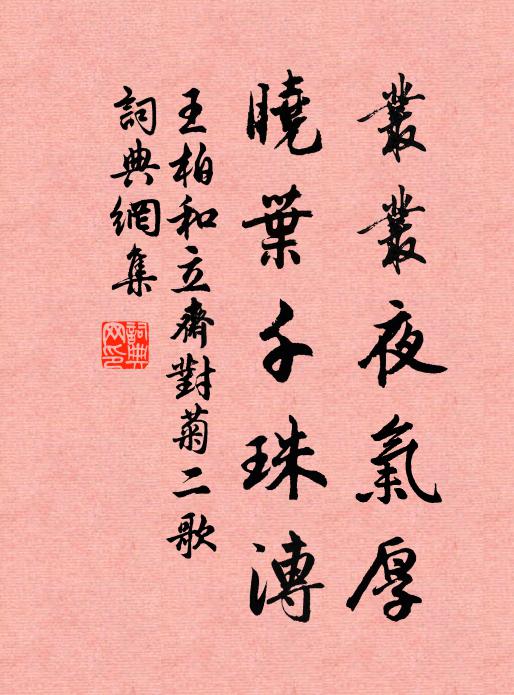 叢叢夜氣厚
曉葉千珠漙
王柏和立齋對菊二歌
詞典網集
詞典网印